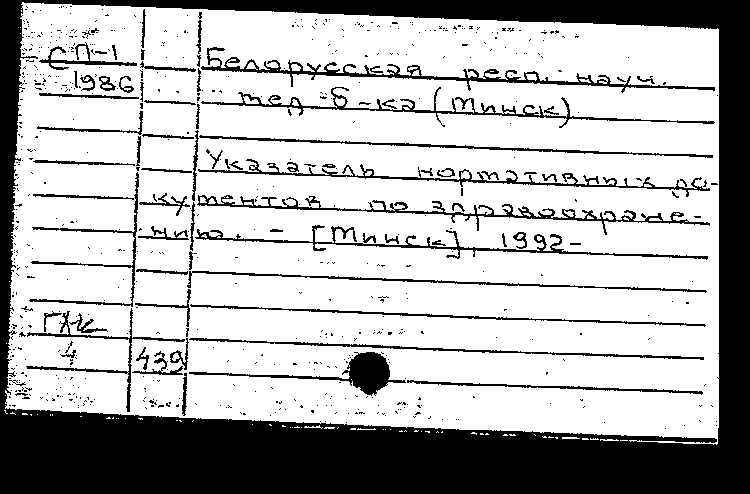 СП-1
1986
Белорусская респ. науч.
мед. б-ка (Минск)
Указатель нормативных до-
кументов по здравоохране-
нию. - [Минск], 1992-
4
439